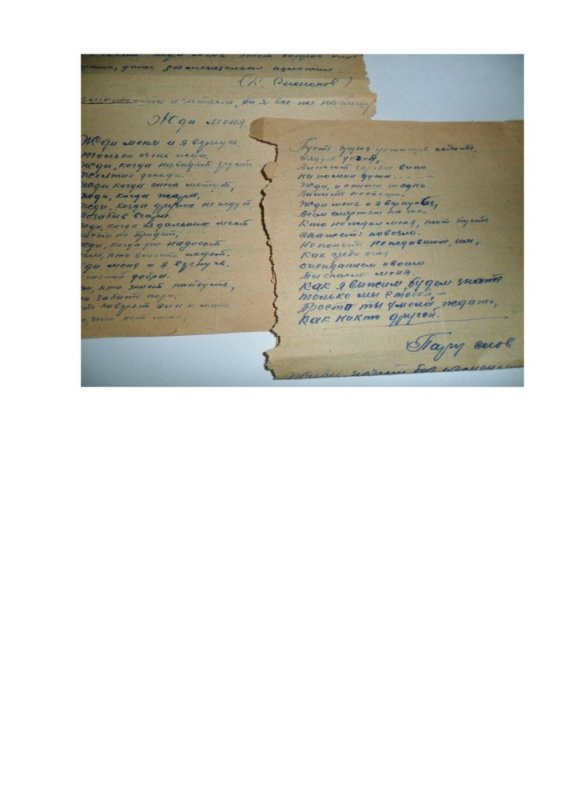 (К. Симонов)
но я все же напишу
Жди меня
Жди меня и я вернусь.
Только очень жди,
Жди, когда наводят грусть
Желтые дожди,
Жди когда снега метут,
Жди, когда жара,
Жди, когда других не ждут
Позабыв вчера.
когда из дальних мест
Писем не придет,
Жди, когда уж надоест
Всем, кто вместе ждет.
Жди меня и я вернусь.
Не желай добра
кто знает наизусть,
забыть пора,
поверят сын и мать
что нет меня,
Пусть друзья устанут ждать,
Сядут у
Выпьют горькое вино
На помин души. . .
Жди, и с ними за одно
Выпить не спеши.
Жди меня и я вернусь,
Всем смертям на зло.
Кто не ждал меня, тот пусть
Скажет: повезло.
Не понять не ждавшим им,
Как среди огня
Ожиданием своим
Ты спасла меня.
Как я выжил, будем знать
Только мы с тобой,
Просто ты умела ждать,
Как никто другой.
Пару слов